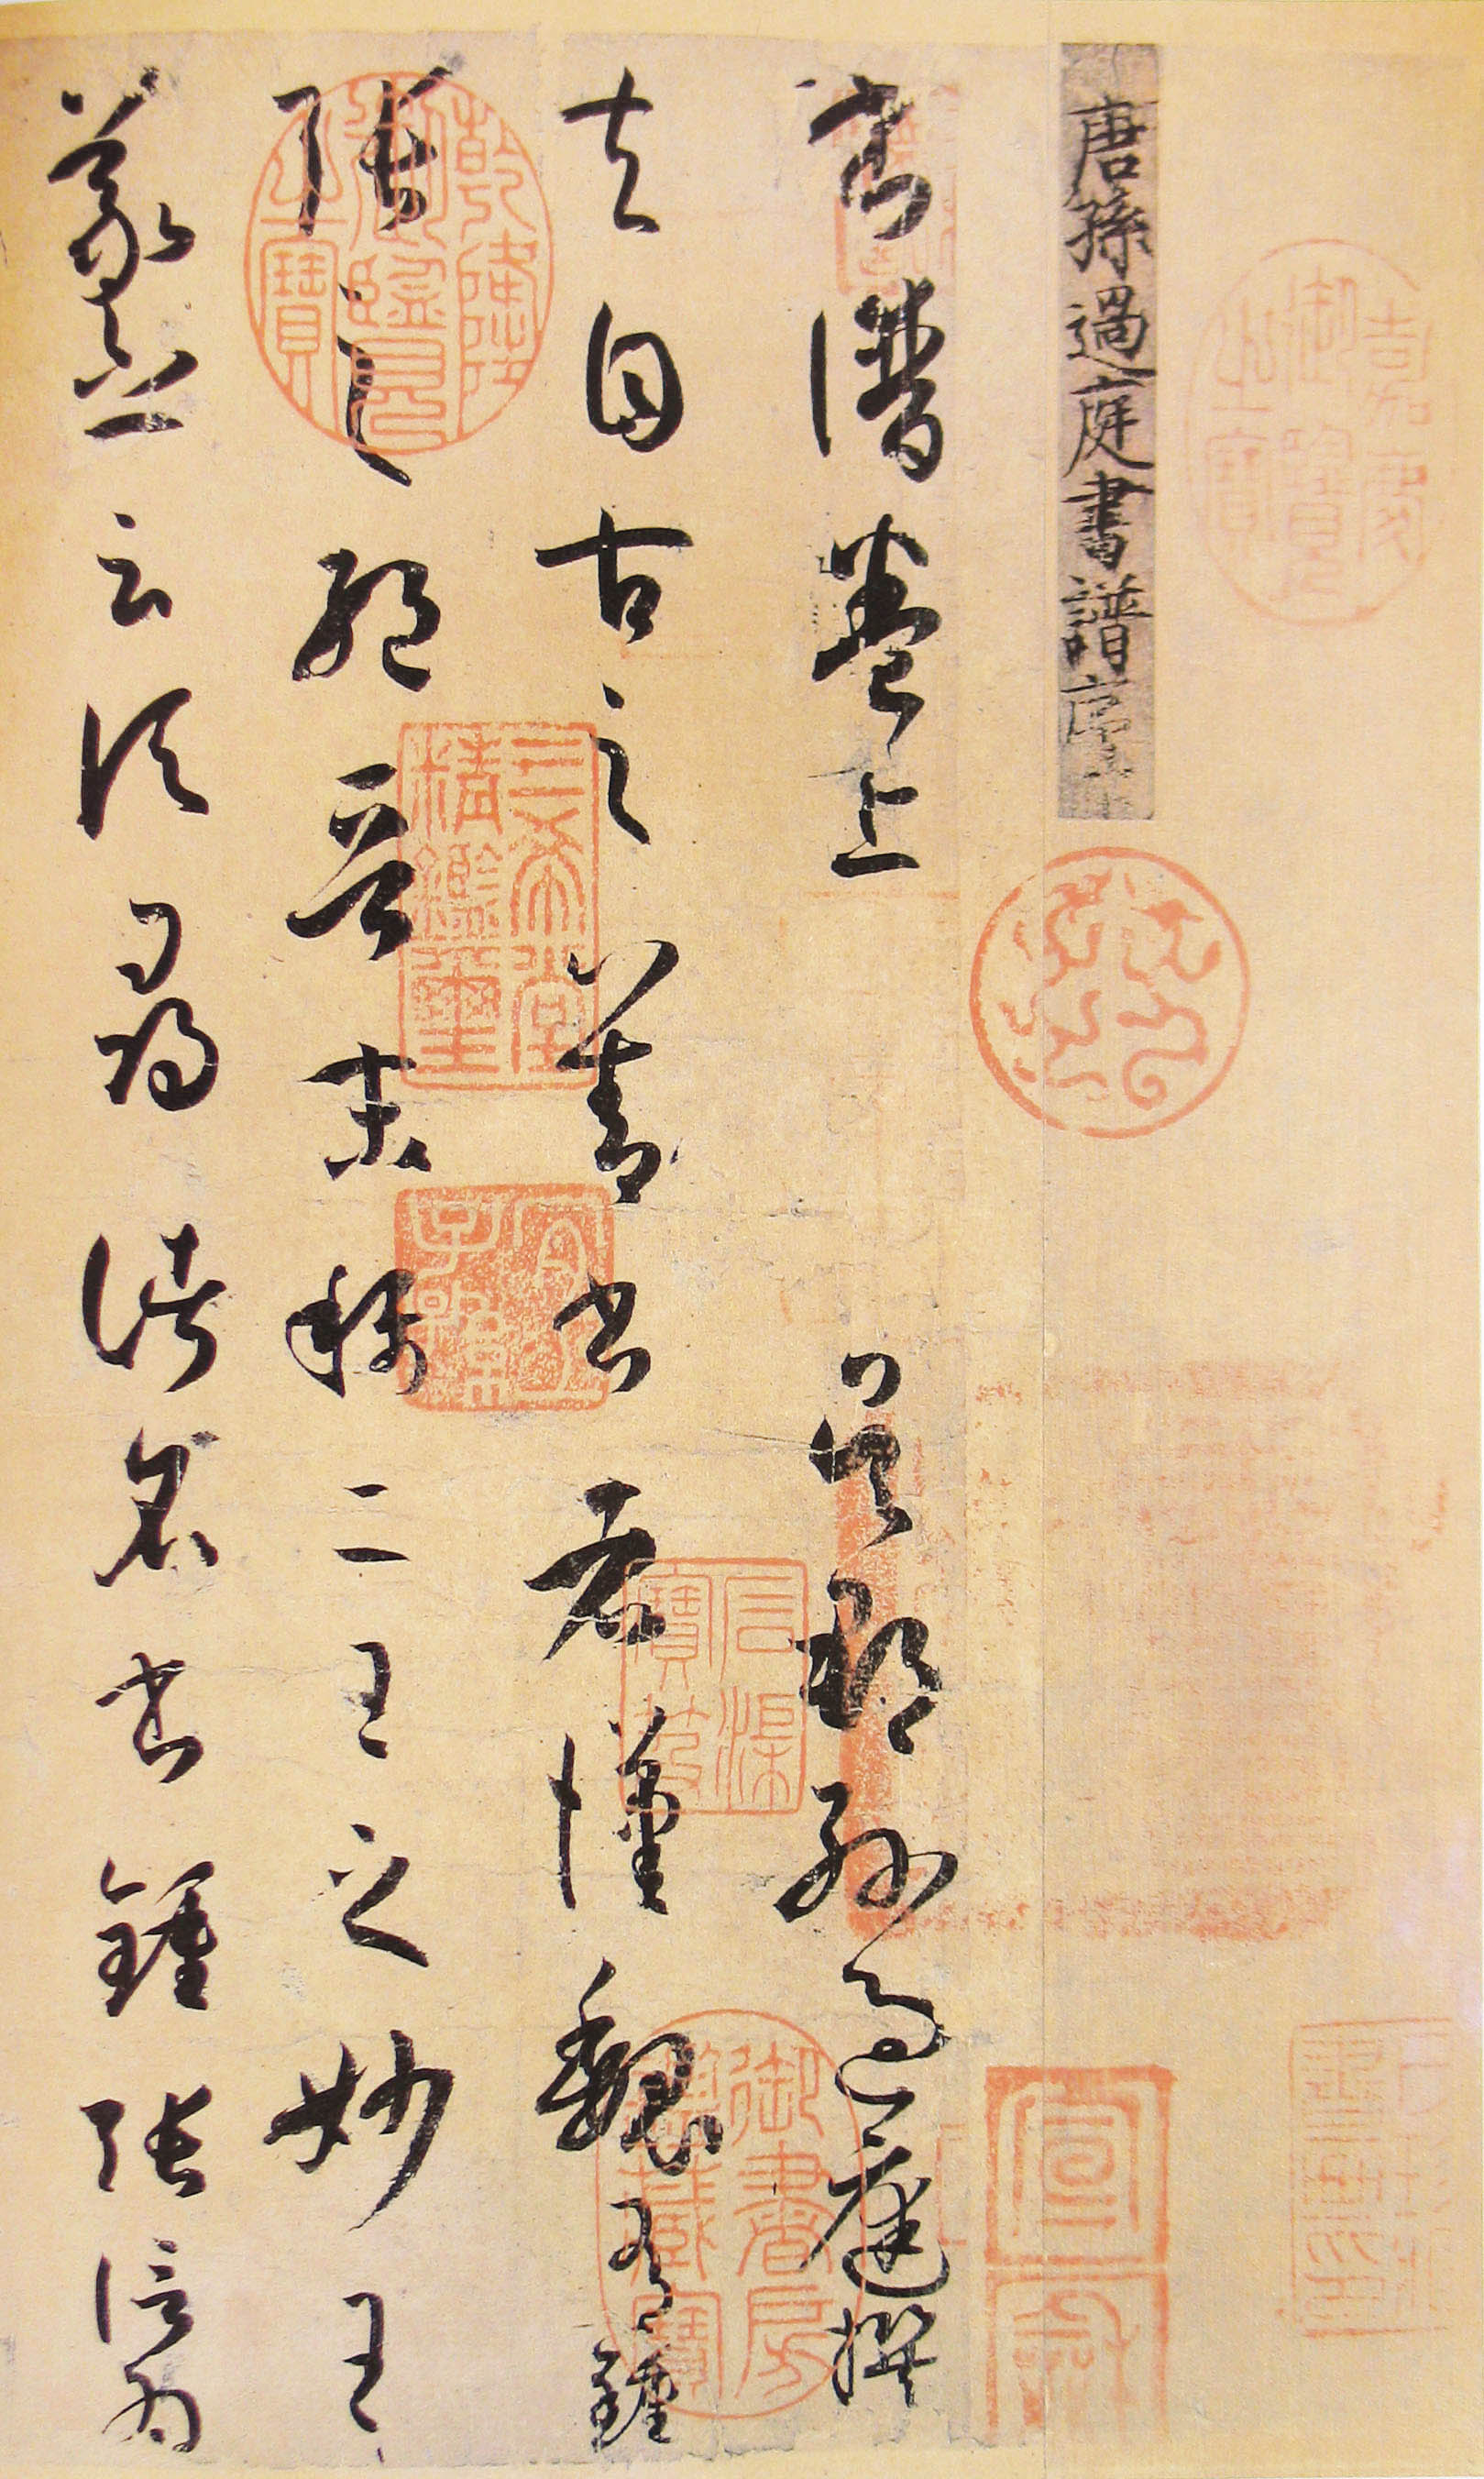 唐孫過庭書譜序
書譜卷上　吳郡孫過庭撰
夫自古之善書者漢魏有鍾
張之絕晉末稱二王之妙王
羲之云頃尋諸名書鍾張信為
嘉慶御覽之寶
乾隆御覽之寶
三希堂精鑑璽
宜子孫
石渠寶笈
御書房鑑藏寶
宣和